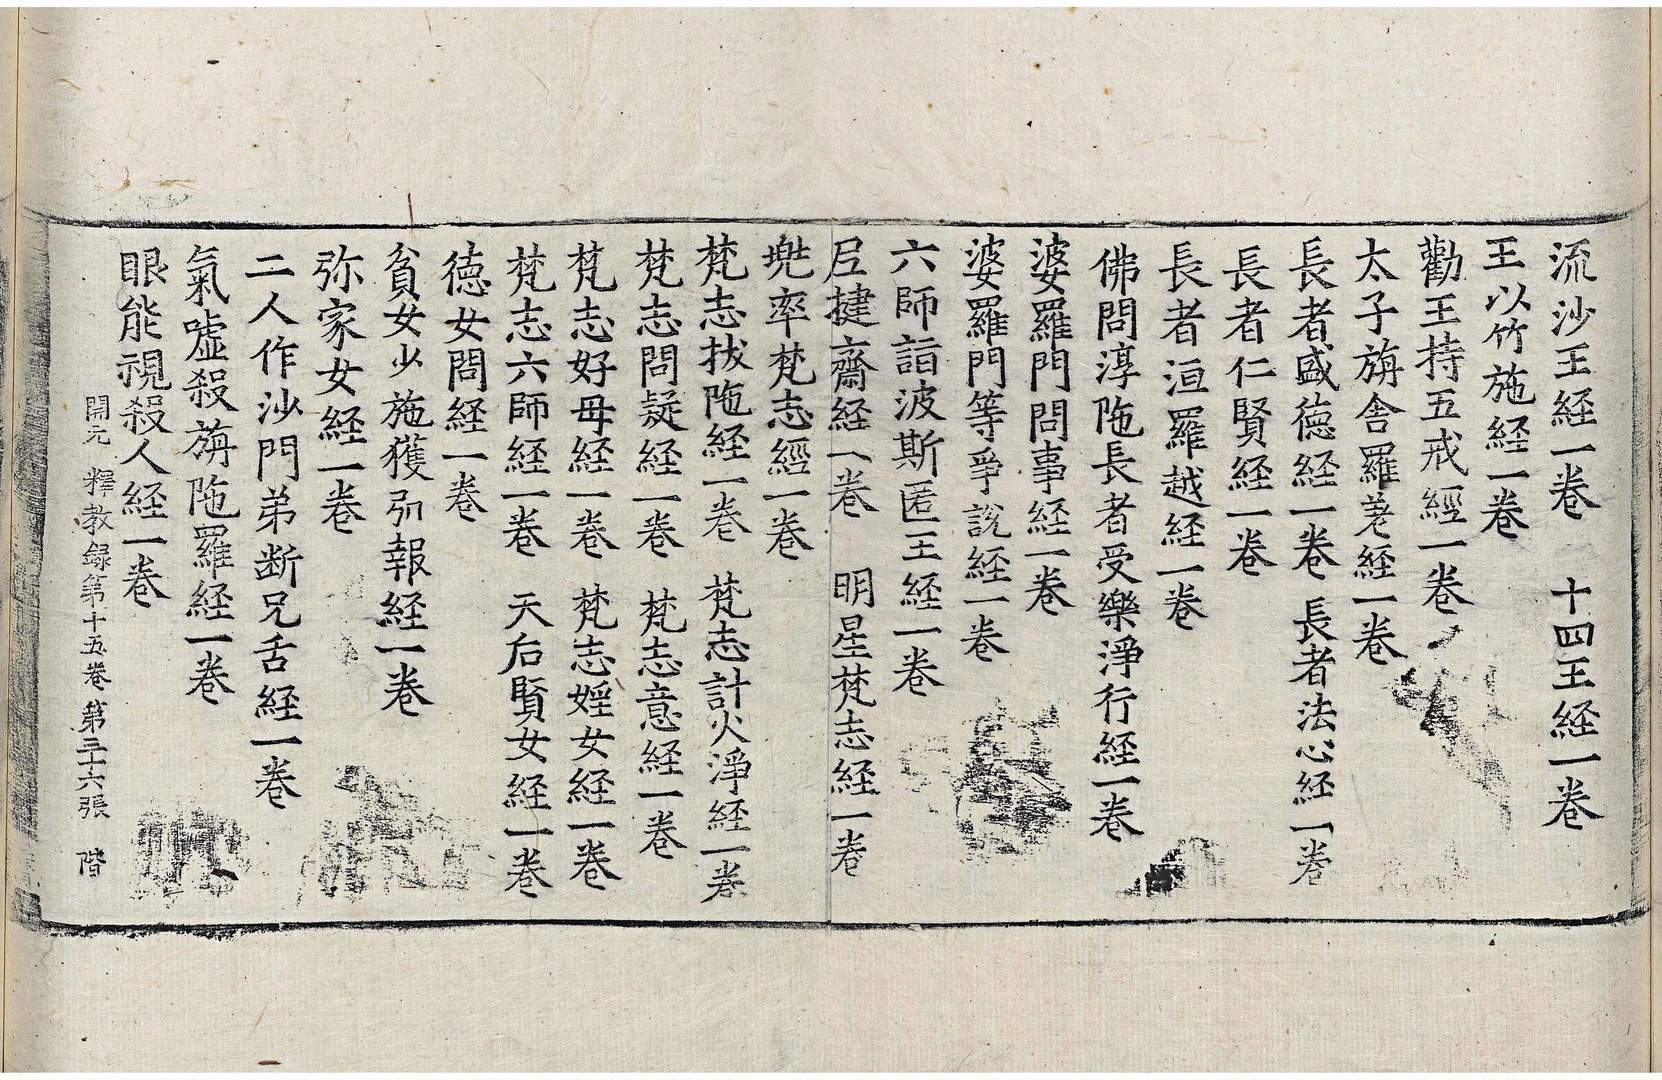 流沙王経一卷　十四王経一卷
王以竹施経一卷
勸王持五戒經一卷
太子旃舍羅㲉経一卷
長者盛徳経一卷　長者法心経一卷
長者仁賢経一卷
長者洹羅越経一卷
佛問淳陁長者受樂淨行経一卷
婆羅門問事経一卷
婆羅門等爭說経一卷
六師詣波斯匿王経一卷
尼揵齋経一卷　明星梵志経一卷
兠率梵志經一卷
梵志拔陁経一卷　梵志計火淨経一卷
梵志問疑経一卷　梵志意経一卷
梵志好母経一卷　梵志婬女経一卷
梵志六師経一卷　天后賢女経一卷
徳女問経一卷
貧女少施獲弘報経一卷
弥家女経一卷
二人作沙門弟断兄舌経一卷
氣噓殺旃陁羅経一卷
眼能視殺人経一卷
開元釋教録第十五卷　第三十六張　階